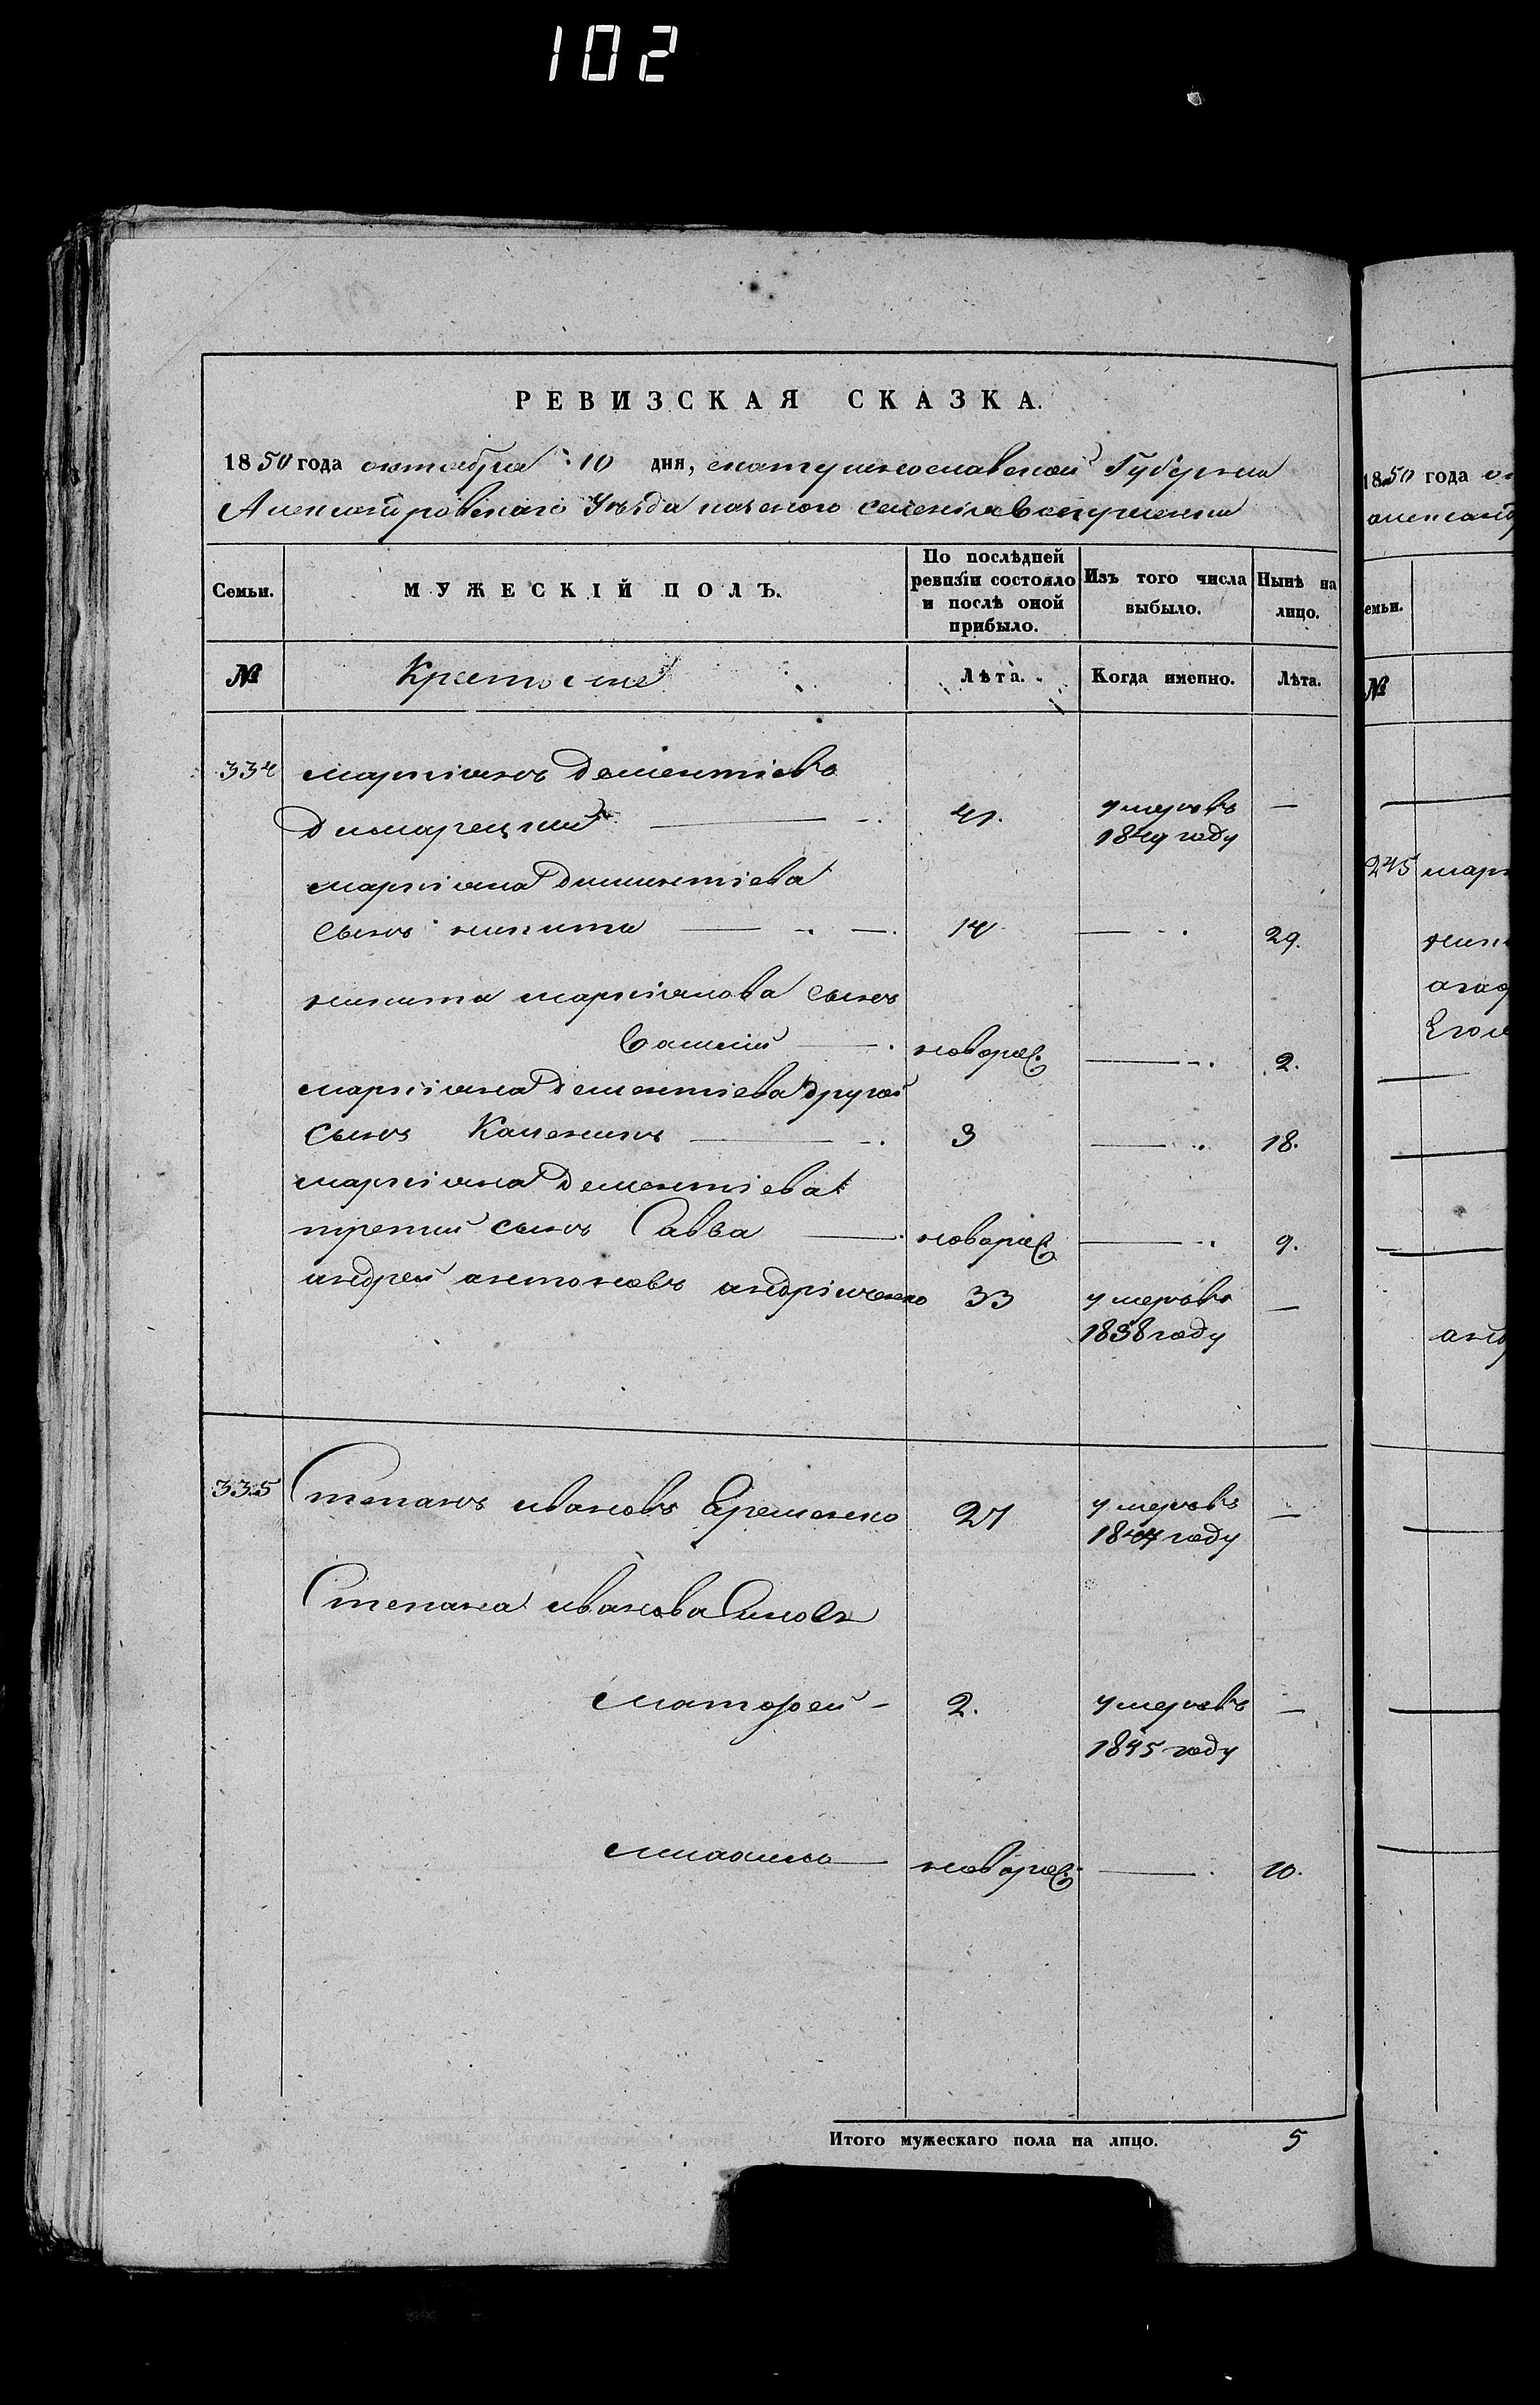 102
РЕВИЗСКАЯ СКАЗКА.
1850 года октября 10 дня, екатеринославской Губернии
Александровскаго Уезда казеного селения воскресенки
Семьи.
МУЖЕСКІЙ ПОЛЪ.
По послѣдней ревизіи состояло и послѣ оной прибыло.
Изъ того числа выбыло.
Нынѣ на лицо.
№
Крестьяне
Лѣта.
Когда именно.
Лѣта.
334 маркіанъ дементіевъ
41. умеръ въ —
1849 году
маркіана диментіева
сынъ никита 14 29.
никита маркіанова сынъ
василій новорож. 2.
маркіана дементіева другой
сынъ 3 18.
маркіана дементіева
третий сынъ Савва новорож. 9.
андрей антоновъ андріиченко 33 умеръ въ —
1838 году
335 Степанъ ивановъ Еременко 27 умеръ въ —
1844 году
Степана иванова Сыновя
матфей 2. умеръ въ —
1845 году
новорож. 10.
Итого мужескаго пола на лицо. 5
1850 года
емьи.
№
245